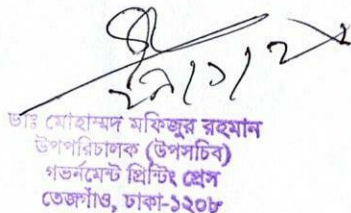 ডাঃ মোহাম্মদ মফিজুর রহমান
উপপরিচালক (উপসচিব)
গভর্নমেন্ট প্রিন্টিং প্রেস
তেজগাঁও, ঢাকা-১২০৮